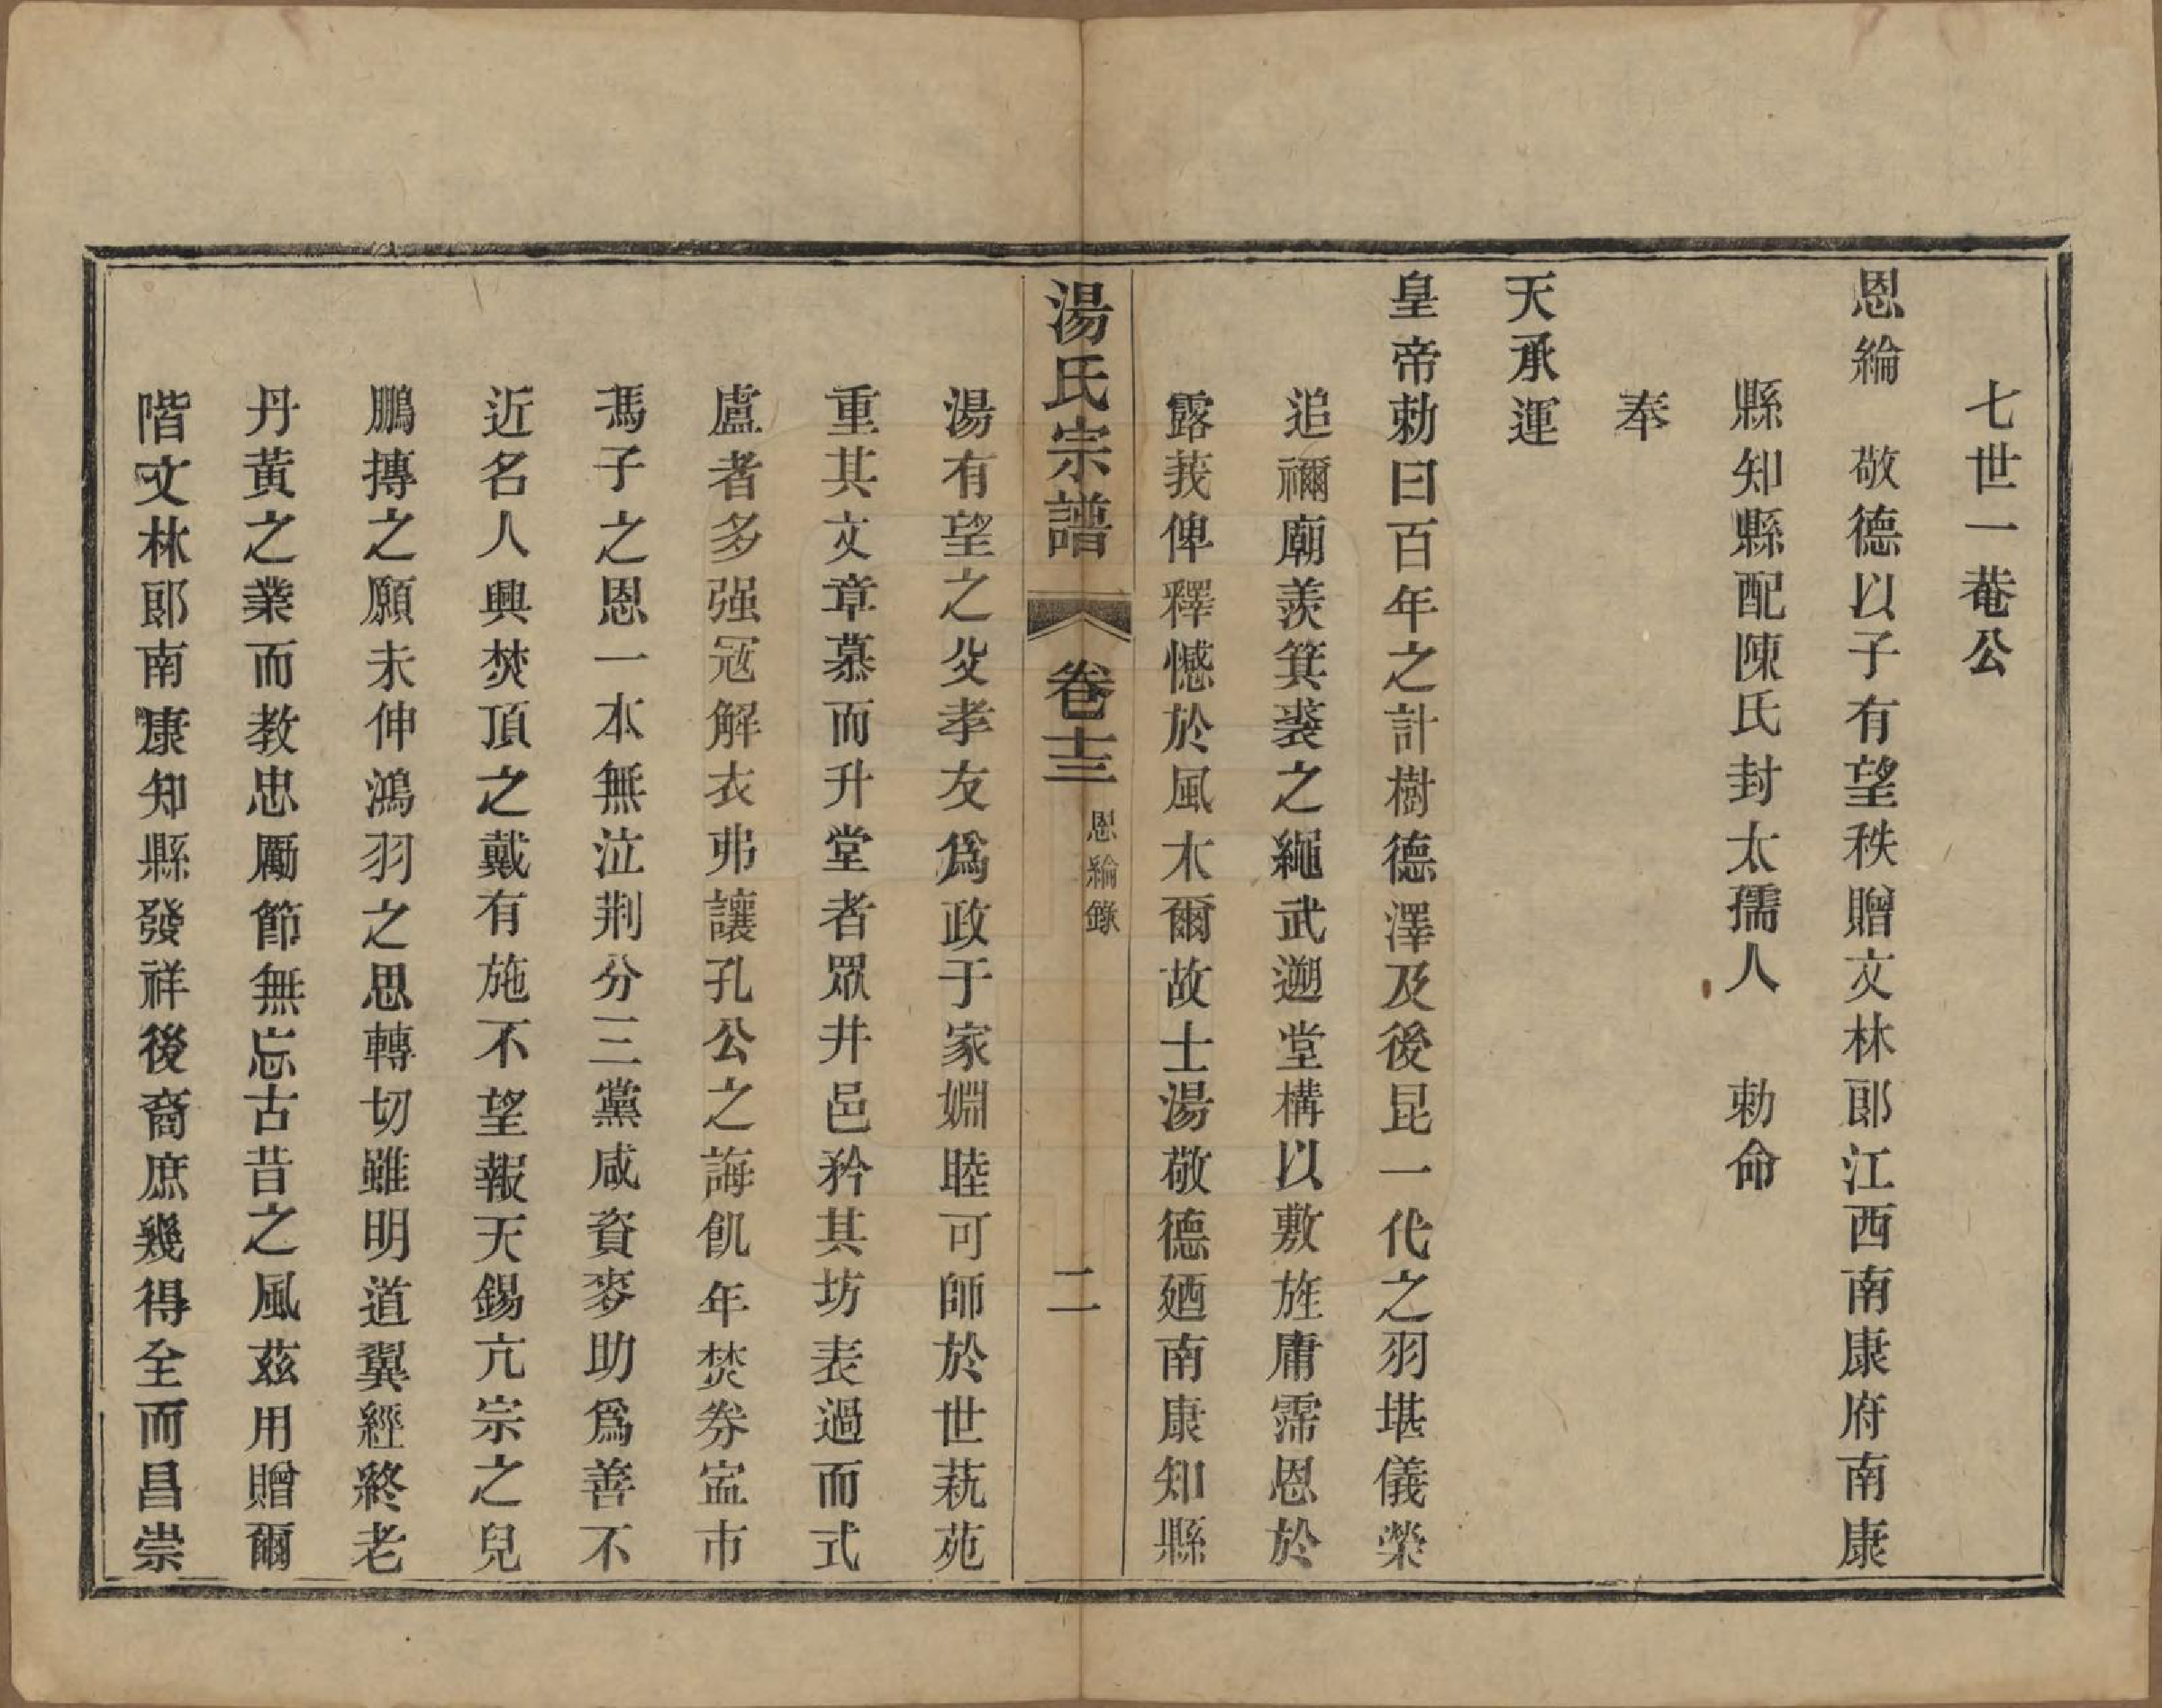 七世一菴公
恩綸　敬德以子有望秩贈文林郎江西南康府南康
縣知縣配陳氏封太孺人　勅命
奉
天承運
皇帝勅曰百年之計樹德澤及後昆一代之羽堪儀榮
追禰廟羨箕裘之繩武遡堂構以敷旌庸霈恩於
露莪俾釋憾於風木爾故士湯敬德廼南康知縣
湯氏宗譜　卷十三　恩綸錄　二
湯有望之父孝友爲政于家婣睦可師於世萟苑
重其文章慕而升堂者眾井邑矜其坊表過而式
盧者多强冦解衣弗讓孔公之誨飢年焚券寍市
馮子之恩一本無泣荆分三黨咸資麥助爲善不
近名人興焚頂之戴有施不望報天錫亢宗之兒
鵬摶之願未伸鴻羽之思轉切雖明道翼經終老
丹黃之業而教忠勵節無忘古昔之風茲用贈爾
階文林郎南康知縣發祥後裔庶幾得全而昌崇